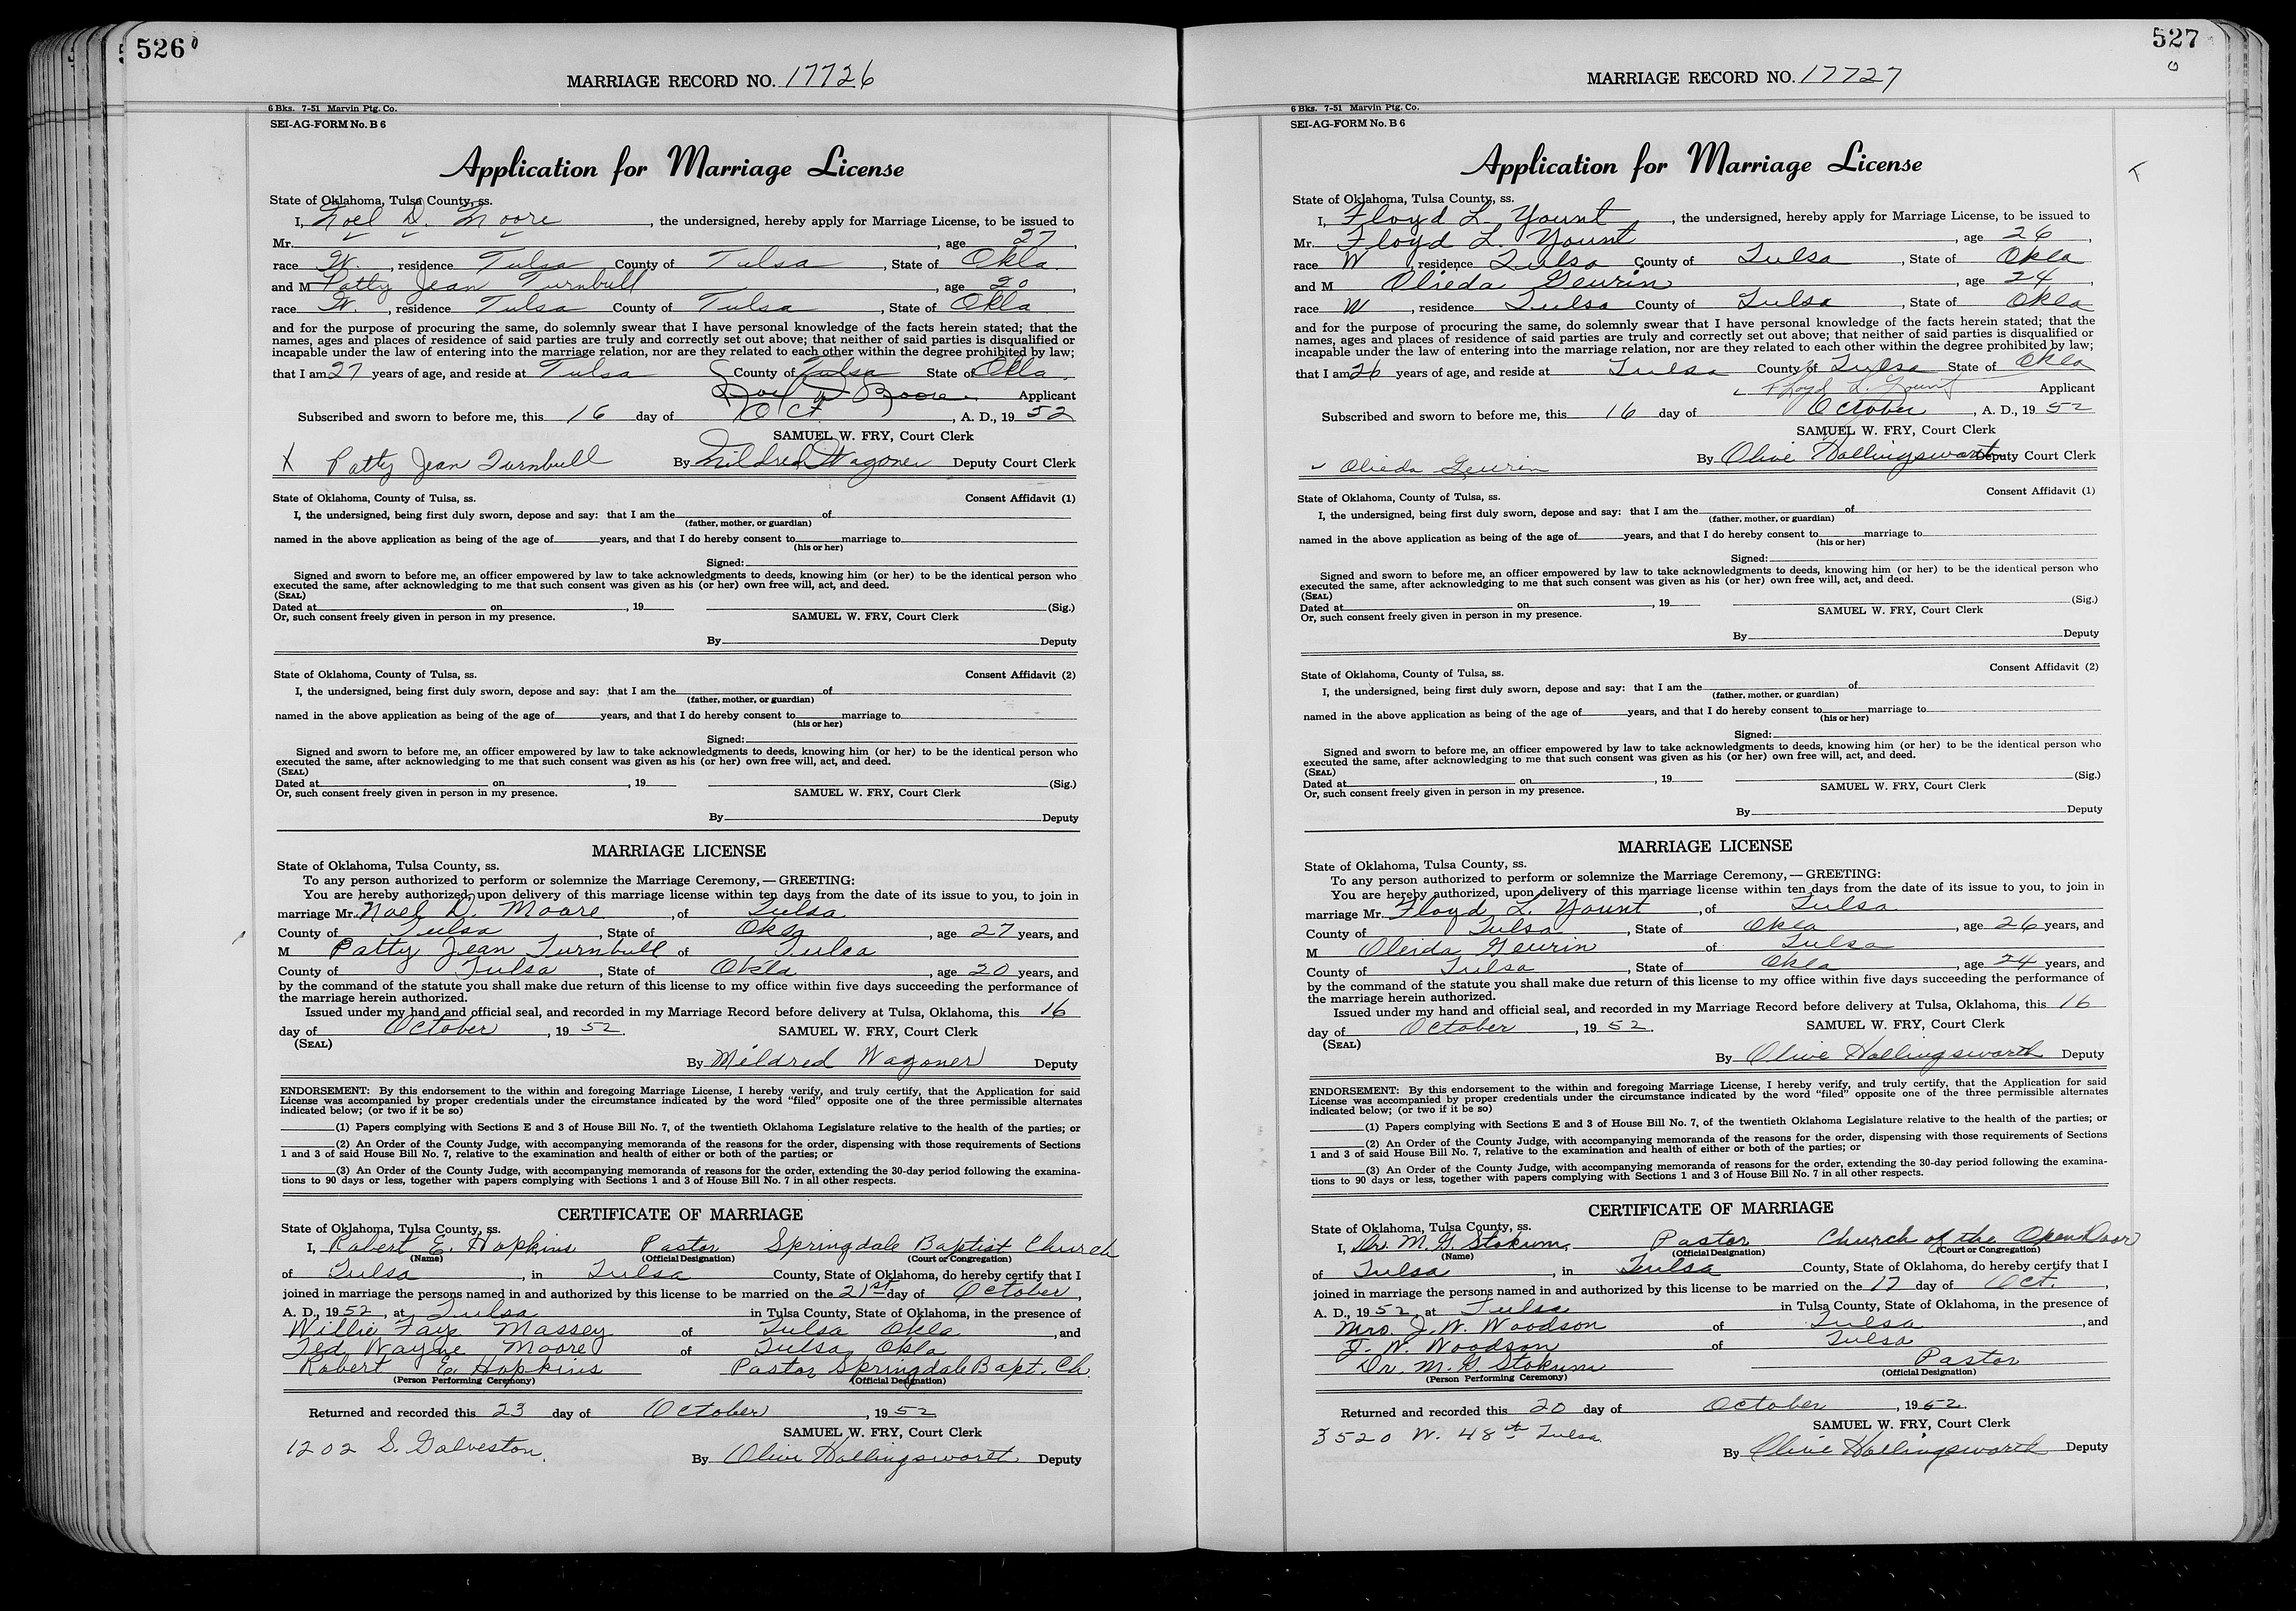 526
MARRIAGE RECORD NO. 17726
6 Bks. 7-51 Marvin Ptg. Co.
SEI-AG-FORM No. B 6
Application for Marriage License
State of Oklahoma, Tulsa County, ss.
I, Noel D. Moore, the undersigned, hereby apply for Marriage License, to be issued to
Mr. , age 27,
race W., residence Tulsa County of Tulsa, State of Okla.
and M Patty Jean Turnbull, age 20,
race W., residence Tulsa County of Tulsa, State of Okla
and for the purpose of procuring the same, do solemnly swear that I have personal knowledge of the facts herein stated; that the
names, ages and places of residence of said parties are truly and correctly set out above; that neither of said parties is disqualified or
incapable under the law of entering into the marriage relation, nor are they related to each other within the degree prohibited by law;
that I am 27 years of age, and reside at Tulsa County of Tulsa State of Okla.
Noel D Moore Applicant
Subscribed and sworn to before me, this 16 day of Oct., A. D., 19 52
SAMUEL W. FRY, Court Clerk
X Patty Jean Turnbull By Mildred Wagoner Deputy Court Clerk
State of Oklahoma, County of Tulsa, ss. Consent Affidavit (1)
I, the undersigned, being first duly sworn, depose and say: that I am the of
(father, mother, or guardian)
named in the above application as being of the age of years, and that I do hereby consent to marriage to
(his or her)
Signed:
Signed and sworn to before me, an officer empowered by law to take acknowledgments to deeds, knowing him (or her) to be the identical person who
executed the same, after acknowledging to me that such consent was given as his (or her) own free will, act, and deed.
(SEAL)
Dated at on , 19 (Sig.)
Or, such consent freely given in person in my presence. SAMUEL W. FRY, Court Clerk
By Deputy
State of Oklahoma, County of Tulsa, ss. Consent Affidavit (2)
I, the undersigned, being first duly sworn, depose and say: that I am the of
(father, mother, or guardian)
named in the above application as being of the age of years, and that I do hereby consent to marriage to
(his or her)
Signed:
Signed and sworn to before me, an officer empowered by law to take acknowledgments to deeds, knowing him (or her) to be the identical person who
executed the same, after acknowledging to me that such consent was given as his (or her) own free will, act, and deed.
(SEAL)
Dated at on , 19 (Sig.)
Or, such consent freely given in person in my presence. SAMUEL W. FRY, Court Clerk
By Deputy
MARRIAGE LICENSE
State of Oklahoma, Tulsa County, ss.
To any person authorized to perform or solemnize the Marriage Ceremony,—GREETING:
You are hereby authorized, upon delivery of this marriage license within ten days from the date of its issue to you, to join in
marriage Mr. Noel D. Moore, of Tulsa
County of Tulsa, State of Okla, age 27 years, and
M Patty Jean Turnbull of Tulsa
County of Tulsa, State of Okla, age 20 years, and
by the command of the statute you shall make due return of this license to my office within five days succeeding the performance of
the marriage herein authorized.
Issued under my hand and official seal, and recorded in my Marriage Record before delivery at Tulsa, Oklahoma, this 16
day of October, 19 52. SAMUEL W. FRY, Court Clerk
(SEAL)
By Mildred Wagoner Deputy
ENDORSEMENT: By this endorsement to the within and foregoing Marriage License, I hereby verify, and truly certify, that the Application for said
License was accompanied by proper credentials under the circumstance indicated by the word "filed" opposite one of the three permissible alternates
indicated below; (or two if it be so)
(1) Papers complying with Sections E and 3 of House Bill No. 7, of the twentieth Oklahoma Legislature relative to the health of the parties; or
(2) An Order of the County Judge, with accompanying memoranda of the reasons for the order, dispensing with those requirements of Sections
1 and 3 of said House Bill No. 7, relative to the examination and health of either or both of the parties; or
(3) An Order of the County Judge, with accompanying memoranda of reasons for the order, extending the 30-day period following the examina-
tions to 90 days or less, together with papers complying with Sections 1 and 3 of House Bill No. 7 in all other respects.
CERTIFICATE OF MARRIAGE
State of Oklahoma, Tulsa County, ss.
I, Robert E. Hopkins Pastor Springdale Baptist Church
(Name) (Official Designation) (Court or Congregation)
of Tulsa, in Tulsa County, State of Oklahoma, do hereby certify that I
joined in marriage the persons named in and authorized by this license to be married on the 21st day of October,
A. D., 19 52, at Tulsa in Tulsa County, State of Oklahoma, in the presence of
Willie Faye Massey of Tulsa Okla, and
Ted Wayne Moore of Tulsa, Okla
Robert E. Hopkins Pastor Springdale Bapt. Ch.
(Person Performing Ceremony) (Official Designation)
Returned and recorded this 23 day of October, 19 52
SAMUEL W. FRY, Court Clerk
1202 S. Galveston.
By Olive Hollingsworth Deputy
527
MARRIAGE RECORD NO. 17727
6 Bks. 7-51 Marvin Ptg. Co.
SEI-AG-FORM No. B 6
Application for Marriage License
State of Oklahoma, Tulsa County, ss.
I, Floyd L. Yount, the undersigned, hereby apply for Marriage License, to be issued to
Mr. Floyd L. Yount, age 26,
race W, residence Tulsa County of Tulsa, State of Okla
and M Olieda Geurin, age 24,
race W, residence Tulsa County of Tulsa, State of Okla
and for the purpose of procuring the same, do solemnly swear that I have personal knowledge of the facts herein stated; that the
names, ages and places of residence of said parties are truly and correctly set out above; that neither of said parties is disqualified or
incapable under the law of entering into the marriage relation, nor are they related to each other within the degree prohibited by law;
that I am 26 years of age, and reside at Tulsa County of Tulsa State of Okla
Floyd L. Yount Applicant
Subscribed and sworn to before me, this 16 day of October, A. D., 19 52
SAMUEL W. FRY, Court Clerk
Olieda Geurin By Olive Hollingsworth Deputy Court Clerk
State of Oklahoma, County of Tulsa, ss. Consent Affidavit (1)
I, the undersigned, being first duly sworn, depose and say: that I am the of
(father, mother, or guardian)
named in the above application as being of the age of years, and that I do hereby consent to marriage to
(his or her)
Signed:
Signed and sworn to before me, an officer empowered by law to take acknowledgments to deeds, knowing him (or her) to be the identical person who
executed the same, after acknowledging to me that such consent was given as his (or her) own free will, act, and deed.
(SEAL)
Dated at on , 19 (Sig.)
Or, such consent freely given in person in my presence. SAMUEL W. FRY, Court Clerk
By Deputy
State of Oklahoma, County of Tulsa, ss. Consent Affidavit (2)
I, the undersigned, being first duly sworn, depose and say: that I am the of
(father, mother, or guardian)
named in the above application as being of the age of years, and that I do hereby consent to marriage to
(his or her)
Signed:
Signed and sworn to before me, an officer empowered by law to take acknowledgments to deeds, knowing him (or her) to be the identical person who
executed the same, after acknowledging to me that such consent was given as his (or her) own free will, act, and deed.
(SEAL)
Dated at on , 19 (Sig.)
Or, such consent freely given in person in my presence. SAMUEL W. FRY, Court Clerk
By Deputy
MARRIAGE LICENSE
State of Oklahoma, Tulsa County, ss.
To any person authorized to perform or solemnize the Marriage Ceremony,—GREETING:
You are hereby authorized, upon delivery of this marriage license within ten days from the date of its issue to you, to join in
marriage Mr. Floyd L. Yount, of Tulsa
County of Tulsa, State of Okla, age 26 years, and
M Oleida Geurin of Tulsa
County of Tulsa, State of Okla, age 24 years, and
by the command of the statute you shall make due return of this license to my office within five days succeeding the performance of
the marriage herein authorized.
Issued under my hand and official seal, and recorded in my Marriage Record before delivery at Tulsa, Oklahoma, this 16
day of October, 19 52. SAMUEL W. FRY, Court Clerk
(SEAL)
By Olive Hollingsworth Deputy
ENDORSEMENT: By this endorsement to the within and foregoing Marriage License, I hereby verify, and truly certify, that the Application for said
License was accompanied by proper credentials under the circumstance indicated by the word "filed" opposite one of the three permissible alternates
indicated below; (or two if it be so)
(1) Papers complying with Sections E and 3 of House Bill No. 7, of the twentieth Oklahoma Legislature relative to the health of the parties; or
(2) An Order of the County Judge, with accompanying memoranda of the reasons for the order, dispensing with those requirements of Sections
1 and 3 of said House Bill No. 7, relative to the examination and health of either or both of the parties; or
(3) An Order of the County Judge, with accompanying memoranda of reasons for the order, extending the 30-day period following the examina-
tions to 90 days or less, together with papers complying with Sections 1 and 3 of House Bill No. 7 in all other respects.
CERTIFICATE OF MARRIAGE
State of Oklahoma, Tulsa County, ss.
I, Dr. M. G. Stokum, Pastor Church of the Open Door
(Name) (Official Designation) (Court or Congregation)
of Tulsa, in Tulsa County, State of Oklahoma, do hereby certify that I
joined in marriage the persons named in and authorized by this license to be married on the 17 day of Oct.,
A. D., 19 52, at Tulsa in Tulsa County, State of Oklahoma, in the presence of
Mrs. J. W. Woodson of Tulsa, and
J. W. Woodson of Tulsa
Dr. M. G. Stokum Pastor
(Person Performing Ceremony) (Official Designation)
Returned and recorded this 20 day of October, 19 52.
SAMUEL W. FRY, Court Clerk
3520 W. 48th Tulsa.
By Olive Hollingsworth Deputy